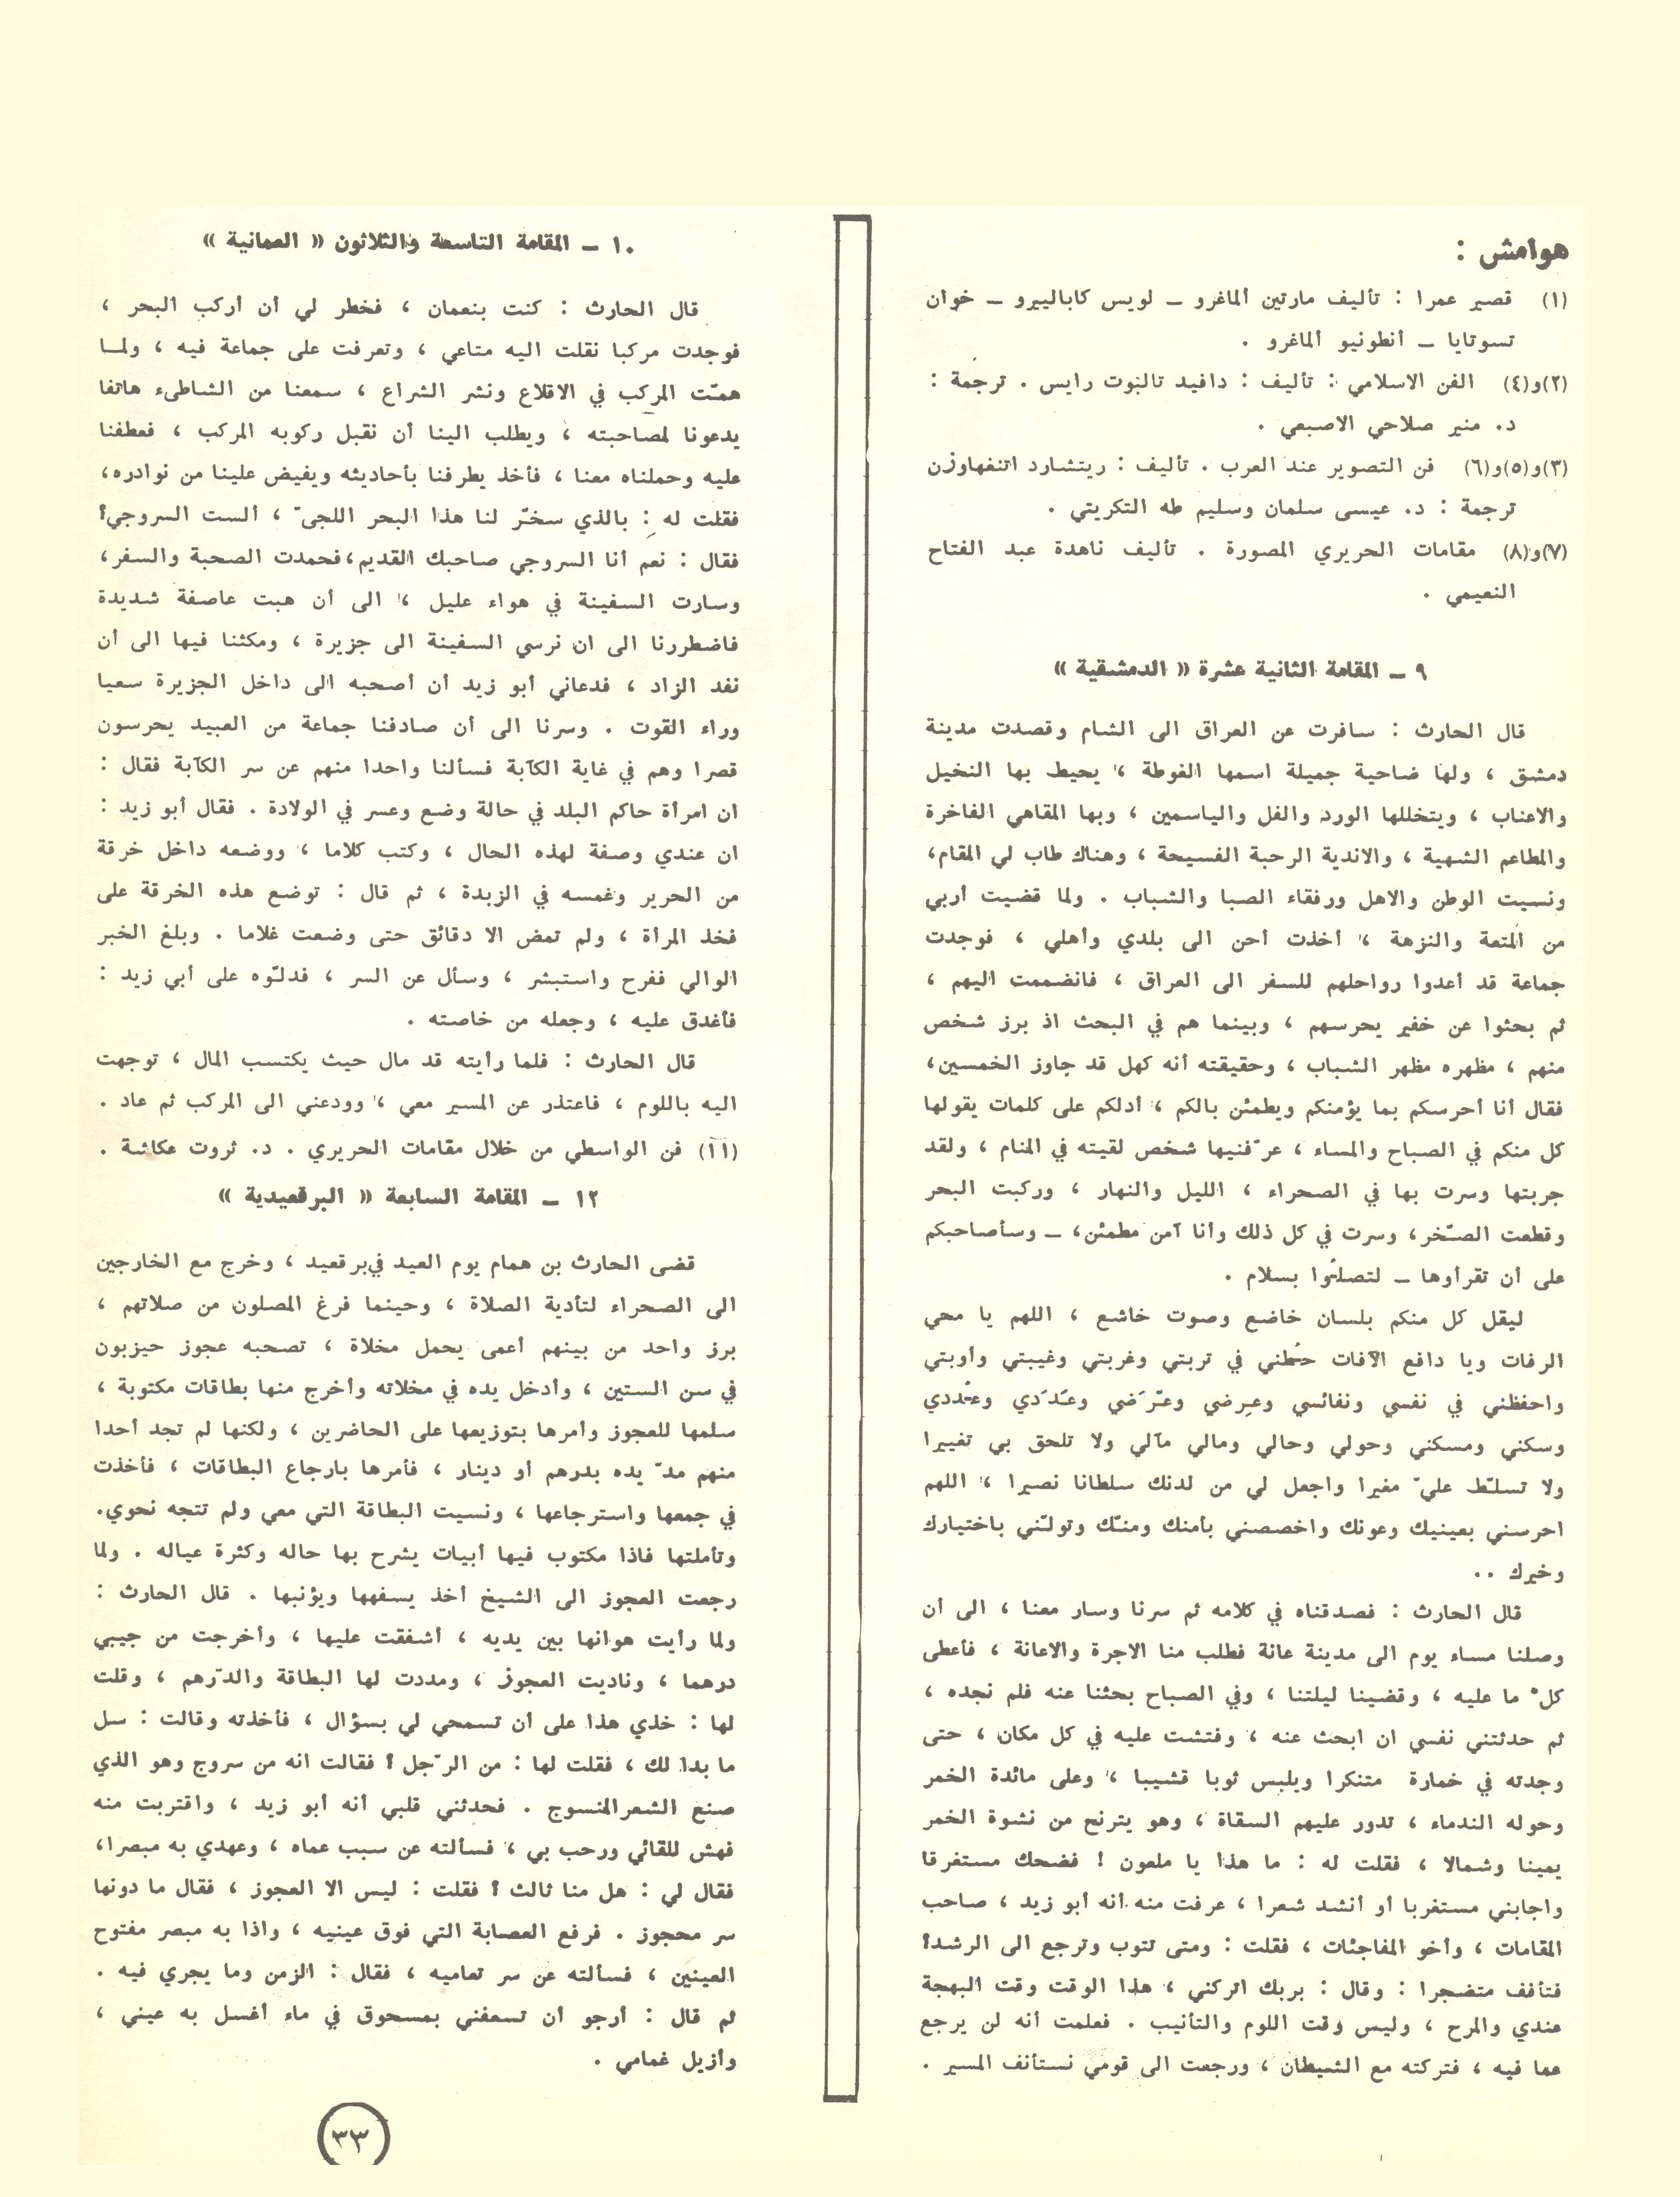 هوامش :
(١) قصير عمرا : تأليف مارتين ألماغرو ـ لويس كاباليرو ـ خوان
تسوتايا ـ أنطونيو ألماغرو .
(٢)و(٤) الفن الاسلامي : تأليف : دافيد تالبوت رايس . ترجمة :
د. منير صلاحي الاصبعي .
(٣)و(٥)و(٦) فن التصوير عند العرب . تأليف : ريتشارد اتنغهاوزن
ترجمة : د. عيسى سلمان وسليم طه التكريتي .
(٧)و(٨) مقامات الحريري المصورة . تأليف ناهدة عبد الفتاح
النعيمي .
٩ ـ المقامة الثانية عشرة « الدمشقية »
قال الحارث : سافرت عن العراق الى الشام وقصدت مدينة
دمشق ، ولها ضاحية جميلة اسمها الغوطة ، يحيط بها النخيل
والاعناب ، ويتخللها الورد والفل والياسمين ، وبها المقاهي الفاخرة
والمطاعم الشهية ، والاندية الرحبة الفسيحة ، وهناك طاب لي المقام،
ونسيت الوطن والاهل ورفقاء الصبا والشباب . ولما قضيت أربي
من المتعة والنزهة ، أخذت أحن الى بلدي وأهلي ، فوجدت
جماعة قد أعدوا رواحلهم للسفر الى العراق ، فانضممت اليهم ،
ثم بحثوا عن خفير يحرسهم ، وبينما هم في البحث اذ برز شخص
منهم ، مظهره مظهر الشباب ، وحقيقته أنه كهل قد جاوز الخمسين،
فقال أنا أحرسكم بما يؤمنكم ويطمئن بالكم ، أدلكم على كلمات يقولها
كل منكم في الصباح والمساء ، عرّفنيها شخص لقيته في المنام ، ولقد
جربتها وسرت بها في الصحراء ، الليل والنهار ، وركبت البحر
وقطعت الصّخر، وسرت في كل ذلك وأنا آمن مطمئن، ـ وسأصاحبكم
على أن تقرأوها ـ لتصلوا بسلام .
ليقل كل منكم بلسان خاضع وصوت خاشع ، اللهم يا محي
الرفات ويا دافع الآفات حُطني في تربتي وغربتي وغيبتي وأوبتي
واحفظني في نفسي ونفائسي وعِرضي وعَرَضي وعَدَدي وعُددي
وسكني ومسكني وحولي وحالي ومالي مآلي ولا تلحق بي تغييرا
ولا تسلّط عليّ مغيرا واجعل لي من لدنك سلطانا نصيرا ، اللهم
احرسني بعينيك وعونك واخصصني بأمنك ومنّك وتولّني باختيارك
وخيرك ..
قال الحارث : فصدقناه في كلامه ثم سرنا وسار معنا ، الى أن
وصلنا مساء يوم الى مدينة عانة فطلب منا الاجرة والاعانة ، فأعطى
كلٌ ما عليه ، وقضينا ليلتنا ، وفي الصباح بحثنا عنه فلم نجده ،
ثم حدثتني نفسي ان ابحث عنه ، وفتشت عليه في كل مكان ، حتى
وجدته في خمارة متنكرا ويلبس ثوبا قشيبا ، وعلى مائدة الخمر
وحوله الندماء ، تدور عليهم السقاة ، وهو يترنح من نشوة الخمر
يمينا وشمالا ، فقلت له : ما هذا يا ملعون ! فضحك مستغرقا
واجابني مستغربا أو أنشد شعرا ، عرفت منه أنه أبو زيد ، صاحب
المقامات ، وأخو المفاجئات ، فقلت : ومتى تتوب وترجع الى الرشد؟
فتأفف متضجرا : وقال : بربك اتركني ، هذا الوقت وقت البهجة
عندي والمرح ، وليس وقت اللوم والتأنيب . فعلمت أنه لن يرجع
عما فيه ، فتركته مع الشيطان ، ورجعت الى قومي نستأنف المسير .
١٠ ـ المقامة التاسعة والثلاثون « العمانية »
قال الحارث : كنت بنعمان ، فخطر لي أن أركب البحر ،
فوجدت مركبا نقلت اليه متاعي ، وتعرفت على جماعة فيه ، ولما
همّت المركب في الاقلاع ونشر الشراع ، سمعنا من الشاطىء هاتفا
يدعونا لمصاحبته ، ويطلب الينا أن نقبل ركوبه المركب ، فعطفنا
عليه وحملناه معنا ، فأخذ يطرفنا بأحاديثه ويفيض علينا من نوادره،
فقلت له : بالذي سخّر لنا هذا البحر اللجيّ ، ألست السروجي؟
فقال : نعم أنا السروجي صاحبك القديم،فحمدت الصحبة والسفر،
وسارت السفينة في هواء عليل ، الى أن هبت عاصفة شديدة
فاضطررنا الى ان نرسي السفينة الى جزيرة ، ومكثنا فيها الى أن
نفد الزاد ، فدعاني أبو زيد أن أصحبه الى داخل الجزيرة سعيا
وراء القوت . وسرنا الى أن صادفنا جماعة من العبيد يحرسون
قصرا وهم في غاية الكآبة فسألنا واحدا منهم عن سر الكآبة فقال :
ان امرأة حاكم البلد في حالة وضع وعسر في الولادة . فقال أبو زيد :
ان عندي وصفة لهذه الحال ، وكتب كلاما ، ووضعه داخل خرقة
من الحرير وغمسه في الزبدة ، ثم قال : توضع هذه الخرقة على
فخذ المرأة ، ولم تمض الا دقائق حتى وضعت غلاما . وبلغ الخبر
الوالي ففرح واستبشر ، وسأل عن السر ، فدلّوه على أبي زيد :
فأغدق عليه ، وجعله من خاصته .
قال الحارث : فلما رأيته قد مال حيث يكتسب المال ، توجهت
اليه باللوم ، فاعتذر عن المسير معي ، وودعني الى المركب ثم عاد .
(١١) فن الواسطي من خلال مقامات الحريري . د. ثروت عكاشة .
١٢ ـ المقامة السابعة « البرقعيدية »
قضى الحارث بن همام يوم العيد في برقعيد ، وخرج مع الخارجين
الى الصحراء لتأدية الصلاة ، وحينما فرغ المصلون من صلاتهم ،
برز واحد من بينهم أعمى يحمل مخلاة ، تصحبه عجوز حيزبون
في سن الستين ، وأدخل يده في مخلاته وأخرج منها بطاقات مكتوبة ،
سلمها للعجوز وأمرها بتوزيعها على الحاضرين ، ولكنها لم تجد أحدا
منهم مدّ يده بدرهم أو دينار ، فأمرها بارجاع البطاقات ، فأخذت
في جمعها واسترجاعها ، ونسيت البطاقة التي معي ولم تتجه نحوي.
وتأملتها فاذا مكتوب فيها أبيات يشرح بها حاله وكثرة عياله . ولما
رجعت العجوز الى الشيخ أخذ يسفهها ويؤنبها . قال الحارث :
ولما رأيت هوانها بين يديه ، أشفقت عليها ، وأخرجت من جيبي
درهما ، وناديت العجوز ، ومددت لها البطاقة والدّرهم ، وقلت
لها : خذي هذا على أن تسمحي لي بسؤال ، فأخذته وقالت : سل
ما بدا لك ، فقلت لها : من الرّجل ؟ فقالت انه من سروج وهو الذي
صنع الشعر المنسوج . فحدثني قلبي أنه أبو زيد ، واقتربت منه
فهش للقائي ورحب بي ، فسألته عن سبب عماه ، وعهدي به مبصرا،
فقال لي : هل منا ثالث ؟ فقلت : ليس الا العجوز ، فقال ما دونها
سر محجوز . فرفع العصابة التي فوق عينيه ، واذا به مبصر مفتوح
العينين ، فسألته عن سر تعاميه ، فقال : الزمن وما يجري فيه .
ثم قال : أرجو أن تسعفني بمسحوق في ماء أغسل به عيني ،
وأزيل غمامي .
٣٣